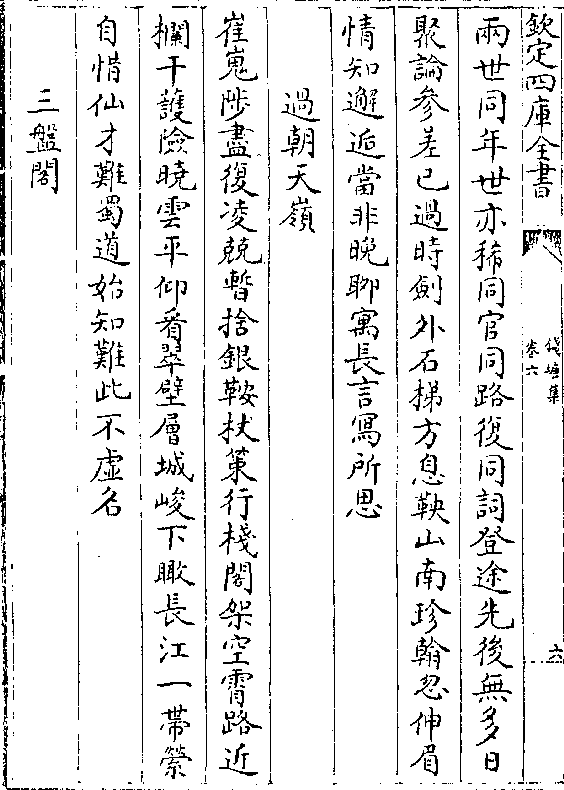 欽定四庫全書
錢塘集
卷六
六
兩世同年世亦稀同官同路復同詞登途先後無多日
聚論參差已過時劍外石梯方息鞅山南珍翰忽伸眉
情知邂逅當非晚聊寓長言寫所思
過朝天嶺
崔嵬陟盡復凌兢暫捨銀鞍杖策行棧閣架空霄路近
欄干護險曉雲平仰看翠壁層城峻下瞰長江一帶縈
自惜仙才難蜀道始知難此不虛名
三盤閣